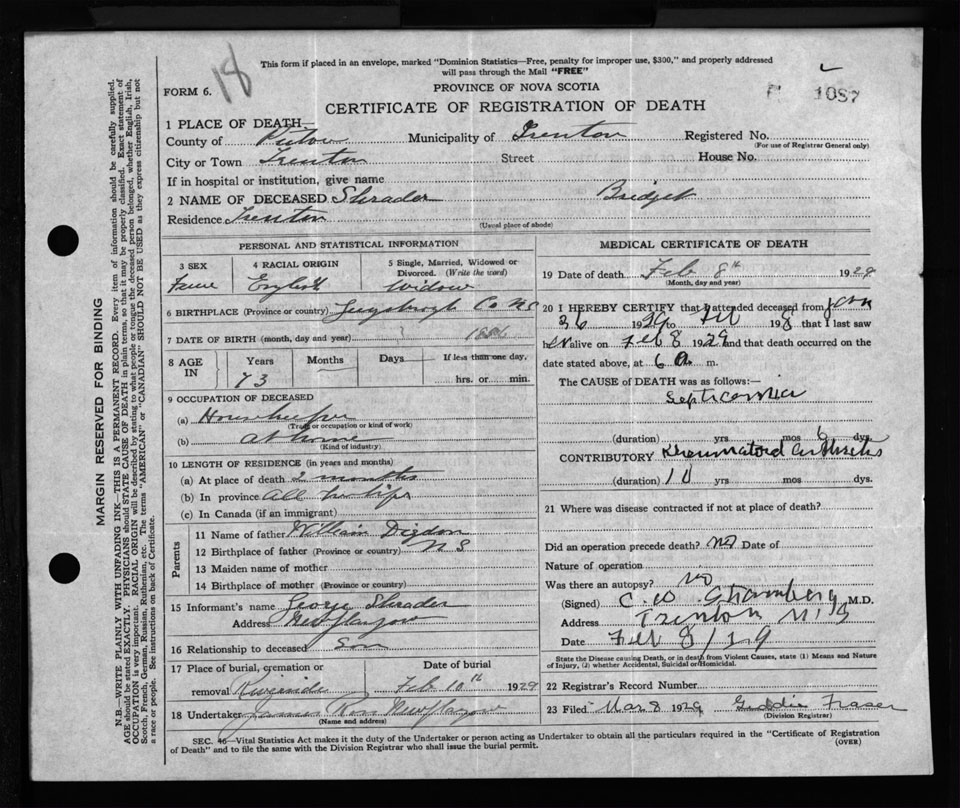 18
This form if placed in an envelope, marked "Dominion Statistics—Free, penalty for improper use, $300," and properly addressed
will pass through the Mail "FREE"
FORM 6.
PROVINCE OF NOVA SCOTIA
1087
CERTIFICATE OF REGISTRATION OF DEATH
1 PLACE OF DEATH—
County of Pictou Municipality of Trenton Registered No.
(For use of Registrar General only)
City or Town Trenton Street House No.
If in hospital or institution, give name
2 NAME OF DECEASED Shrader Bridget
Residence Trenton
(Usual place of abode)
PERSONAL AND STATISTICAL INFORMATION
3 SEX 4 RACIAL ORIGIN 5 Single, Married, Widowed or Divorced. (Write the word)
English Widow
6 BIRTHPLACE (Province or country) Co NS
7 DATE OF BIRTH (month, day and year)
8 AGE IN Years Months Days If less than one day.
73 hrs. or min.
9 OCCUPATION OF DECEASED
(a) Housekeeper
(Trade or occupation or kind of work)
(b) at home
(Kind of industry)
10 LENGTH OF RESIDENCE (in years and months)
(a) At place of death 2 months
(b) In province all her life
(c) In Canada (if an immigrant)
Parents
11 Name of father William Digdon
12 Birthplace of father (Province or country) N S
13 Maiden name of mother
14 Birthplace of mother (Province or country)
15 Informant's name George Shrader
Address New Glasgow
16 Relationship to deceased Son
17 Place of burial, cremation or Date of burial
removal Riverside Feb 10th 1929
18 Undertaker James Ross New Glasgow
(Name and address)
MEDICAL CERTIFICATE OF DEATH
19 Date of death Feb 8th 1929
(Month, day and year)
20 I HEREBY CERTIFY that I attended deceased from Jan
1929 to Feb 8 that I last saw
h er alive on Feb 8 1929 and that death occurred on the
date stated above, at 6 a m.
The CAUSE OF DEATH was as follows:—
Septicaemia
(duration) yrs mos 6 dys.
CONTRIBUTORY Rheumatoid Arthritis
(duration) 10 yrs. mos dys.
21 Where was disease contracted if not at place of death?
Did an operation precede death? no Date of
Nature of operation
Was there an autopsy? no
(Signed) C. W. M.D.
Address Trenton N.S
Date Feb 8/29
State the Disease causing Death, or in death from Violent Causes, state (1) Means and Nature
of Injury, (2) whether Accidental, Suicidal or Homicidal.
22 Registrar's Record Number
23 Filed Mar 8 1929 Fraser
(Division Registrar)
SEC. Vital Statistics Act makes it the duty of the Undertaker or person acting as Undertaker to obtain all the particulars required in the "Certificate of Registration
of Death" and to file the same with the Division Registrar who shall issue the burial permit.
(OVER)
MARGIN RESERVED FOR BINDING
N.B.—WRITE PLAINLY WITH UNFADING INK—THIS IS A PERMANENT RECORD. Every item of information should be carefully supplied.
AGE should be stated EXACTLY. PHYSICIANS should STATE CAUSE OF DEATH in plain terms, so that it may be properly classified. Exact statement of
OCCUPATION is very important. RACIAL ORIGIN will be described by stating to what people or tongue the deceased person belonged, whether English, Irish,
Scotch, French, German, Russian, Ruthenian, etc. The terms "AMERICAN" or "CANADIAN" SHOULD NOT BE USED as they express citizenship but not
a race or people. See instructions on back of Certificate.